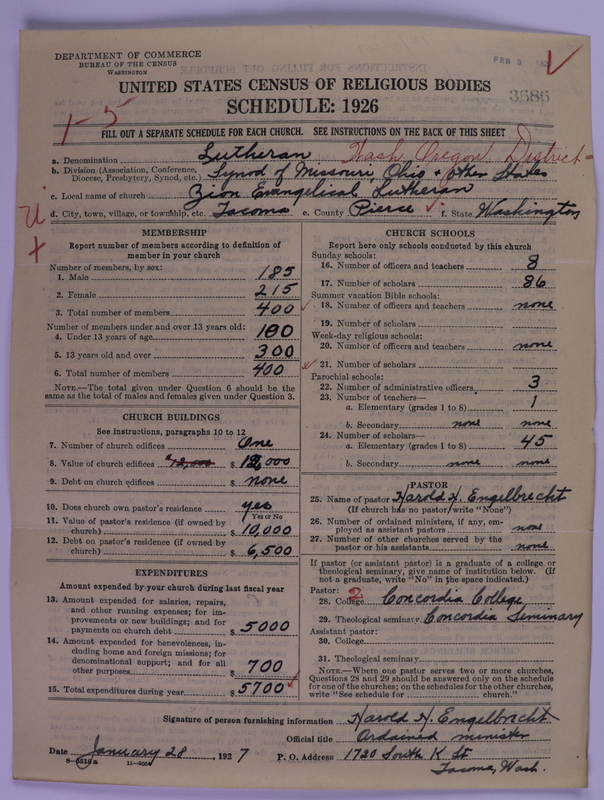 DEPARTMENT OF COMMERCE
BUREAU OF THE CENSUS
WASHINGTON
FEB 3
3686
UNITED STATES CENSUS OF RELIGIOUS BODIES
SCHEDULE: 1926
1-5
FILL OUT A SEPARATE SCHEDULE FOR EACH CHURCH. SEE INSTRUCTIONS ON THE BACK OF THIS SHEET
a. Denomination Lutheran Wash. Oregon District
b. Division (Association, Conference, Synod of Missouri, Ohio & other States
Diocese, Presbytery, Synod, etc.)
c. Local name of church Zion Evangelical Lutheran
d. City, town, village, or township, etc. Tacoma e. County Pierce f. State Washington
MEMBERSHIP
Report number of members according to definition of
member in your church
Number of members, by sex:
1. Male 185
2. Female 215
3. Total number of members 400
Number of members under and over 13 years old:
4. Under 13 years of age 100
5. 13 years old and over 300
6. Total number of members 400
NOTE.—The total given under Question 6 should be the
same as the total of males and females given under Question 3.
CHURCH BUILDINGS
See instructions, paragraphs 10 to 12
7. Number of church edifices One
8. Value of church edifices $ 12,000
9. Debt on church edifices $ none
10. Does church own pastor's residence? yes
Yes or No
11. Value of pastor's residence (if owned by
church) $ 10,000
12. Debt on pastor's residence (if owned by
church) $ 6,500
EXPENDITURES
Amount expended by your church during last fiscal year
13. Amount expended for salaries, repairs,
and other running expenses; for im-
provements or new buildings; and for
payments on church debt $ 5000
14. Amount expended for benevolences, in-
cluding home and foreign missions; for
denominational support; and for all
other purposes $ 700
15. Total expenditures during year $ 5700
CHURCH SCHOOLS
Report here only schools conducted by this church
Sunday schools:
16. Number of officers and teachers 8
17. Number of scholars 86
Summer vacation Bible schools:
18. Number of officers and teachers none
19. Number of scholars
Week-day religious schools:
20. Number of officers and teachers none
21. Number of scholars
Parochial schools:
22. Number of administrative officers 3
23. Number of teachers—
a. Elementary (grades 1 to 8) 1
b. Secondary none none
24. Number of scholars—
a. Elementary (grades 1 to 8) 45
b. Secondary none none
PASTOR
25. Name of pastor Harold H. Engelbrecht
(If church has no pastor, write "None")
26. Number of ordained ministers, if any, em-
ployed as assistant pastors none
27. Number of other churches served by the
pastor or his assistants none
If pastor (or assistant pastor) is a graduate of a college or
theological seminary, give name of institution below. (If
not a graduate, write "No" in the space indicated.)
Pastor: 2
28. College Concordia College
29. Theological seminary Concordia Seminary
Assistant pastor:
30. College
31. Theological seminary
NOTE.—Where one pastor serves two or more churches,
Questions 28 and 29 should be answered only on the schedule
for one of the churches; on the schedules for the other churches,
write "See schedule for church."
Signature of person furnishing information Harold H. Engelbrecht
Official title Ordained minister
Date January 28, 1927 P. O. Address 1720 South K St
Tacoma, Wash.